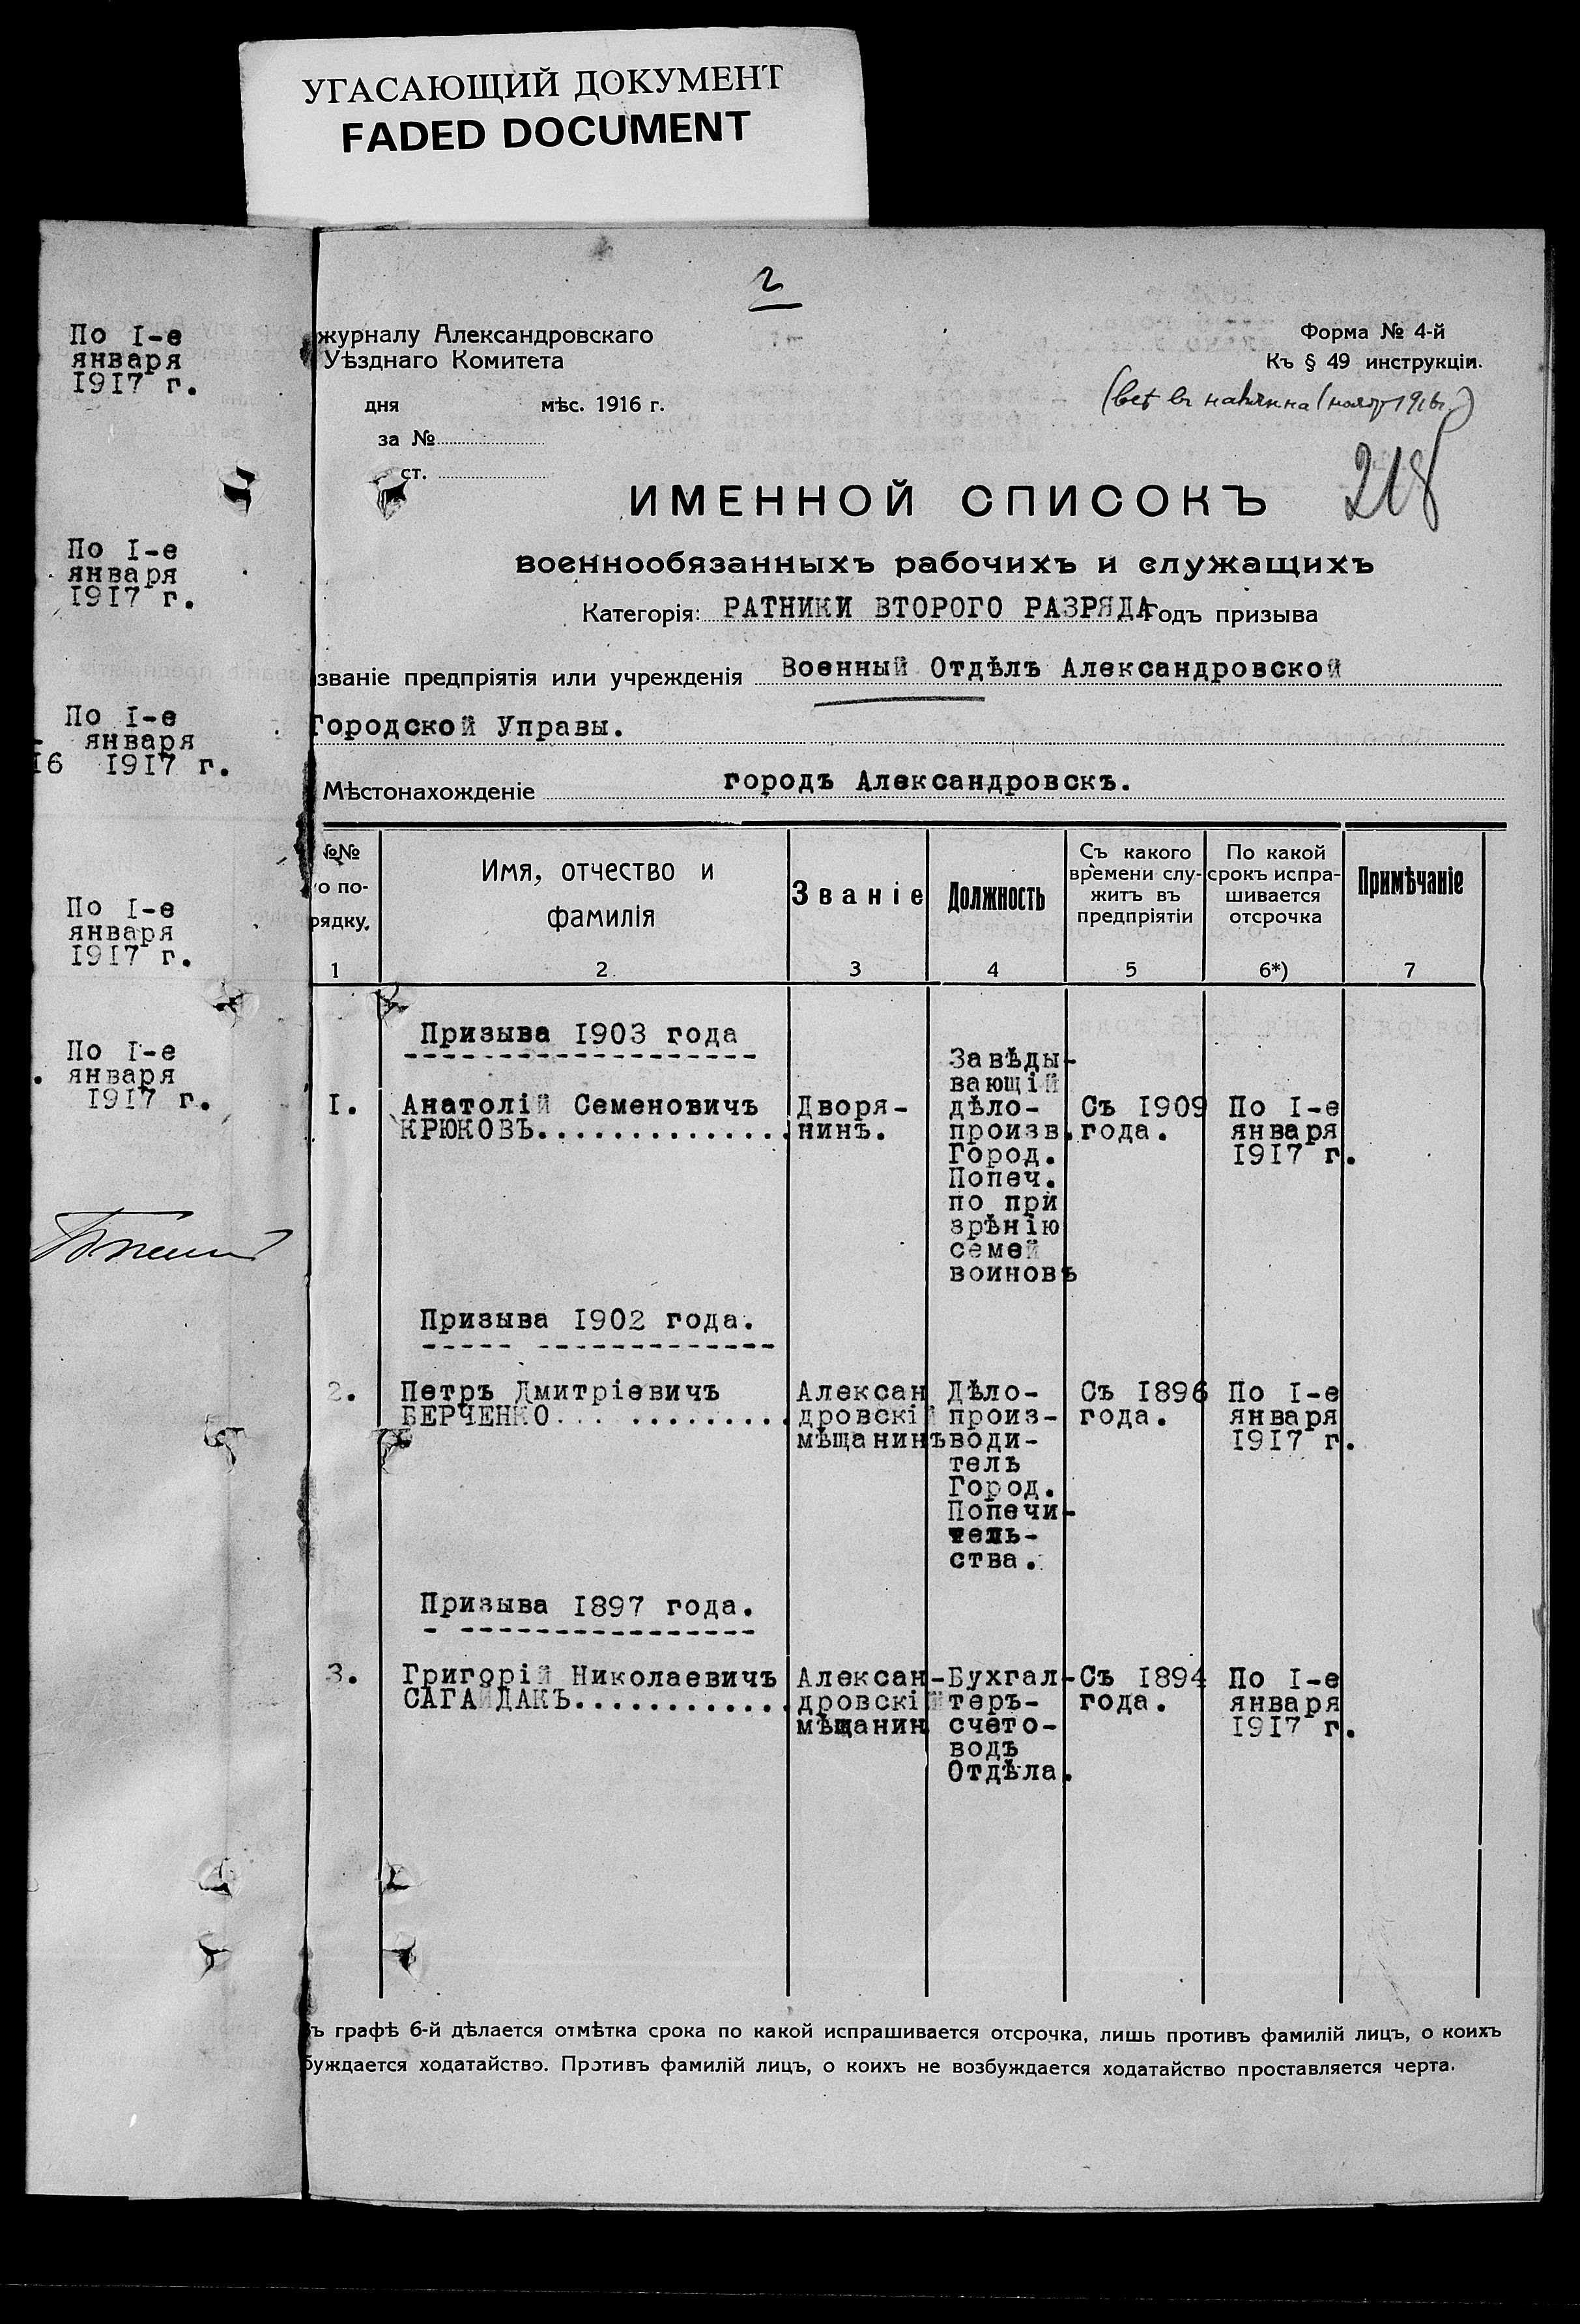 УГАСАЮЩИЙ ДОКУМЕНТ
FADED DOCUMENT
По I-е
января
1917 г.
По I-е
января
1917 г.
По I-е
января
16 1917 г.
По I-е
января
1917 г.
По I-е
января
1917 г.
2
журналу Александровскаго
Уѣзднаго Комитета
дня мѣс. 1916 г.
за №
ст.
Форма № 4-й
Къ § 49 инструкціи.
218
ИМЕННОЙ СПИСОКЪ
военнообязанныхъ рабочихъ и служащихъ
Категорія: РАТНИКИ ВТОРОГО РАЗРЯДА Годъ призыва
званіе предпріятія или учрежденія Военный Отдѣлъ Александровской
Городской Управы.
Мѣстонахожденіе городъ Александровскъ.
№№
о по-
рядку.
Имя, отчество и
фамилія
Званіе
Должность
Съ какого
времени слу-
житъ въ
предпріятіи
По какой
срокъ испра-
шивается
отсрочка
Примѣчаніе
1 2 3 4 5 6*) 7
Призыва 1903 года
I. Анатолій Семеновичъ
КРЮКОВЪ..............
Дворя-
нинъ.
Завѣды-
вающій
дѣло-
произв.
Город.
Попеч.
по при
зрѣнію
семей
воиновъ
Съ 1909
года.
По I-е
января
1917 г.
Призыва 1902 года.
2. Петръ Дмитріевичъ
БЕРЧЕНКО.............
Алексан
дровскій
мѣщанинъ
Дѣло-
произ-
води-
тель
Город.
Попечи-
тель-
ства.
Съ 1896
года.
По I-е
января
1917 г.
Призыва 1897 года.
3. Григорій Николаевичъ
САГАЙДАКЪ............
Алексан-
дровскій
мѣщанин
Бухгал-
теръ-
счето-
водъ
Отдѣла.
Съ 1894
года.
По I-е
января
1917 г.
ъ графѣ 6-й дѣлается отмѣтка срока по какой испрашивается отсрочка, лишь противъ фамилій лицъ, о коихъ
буждается ходатайство. Противъ фамилій лицъ, о коихъ не возбуждается ходатайство проставляется черта.